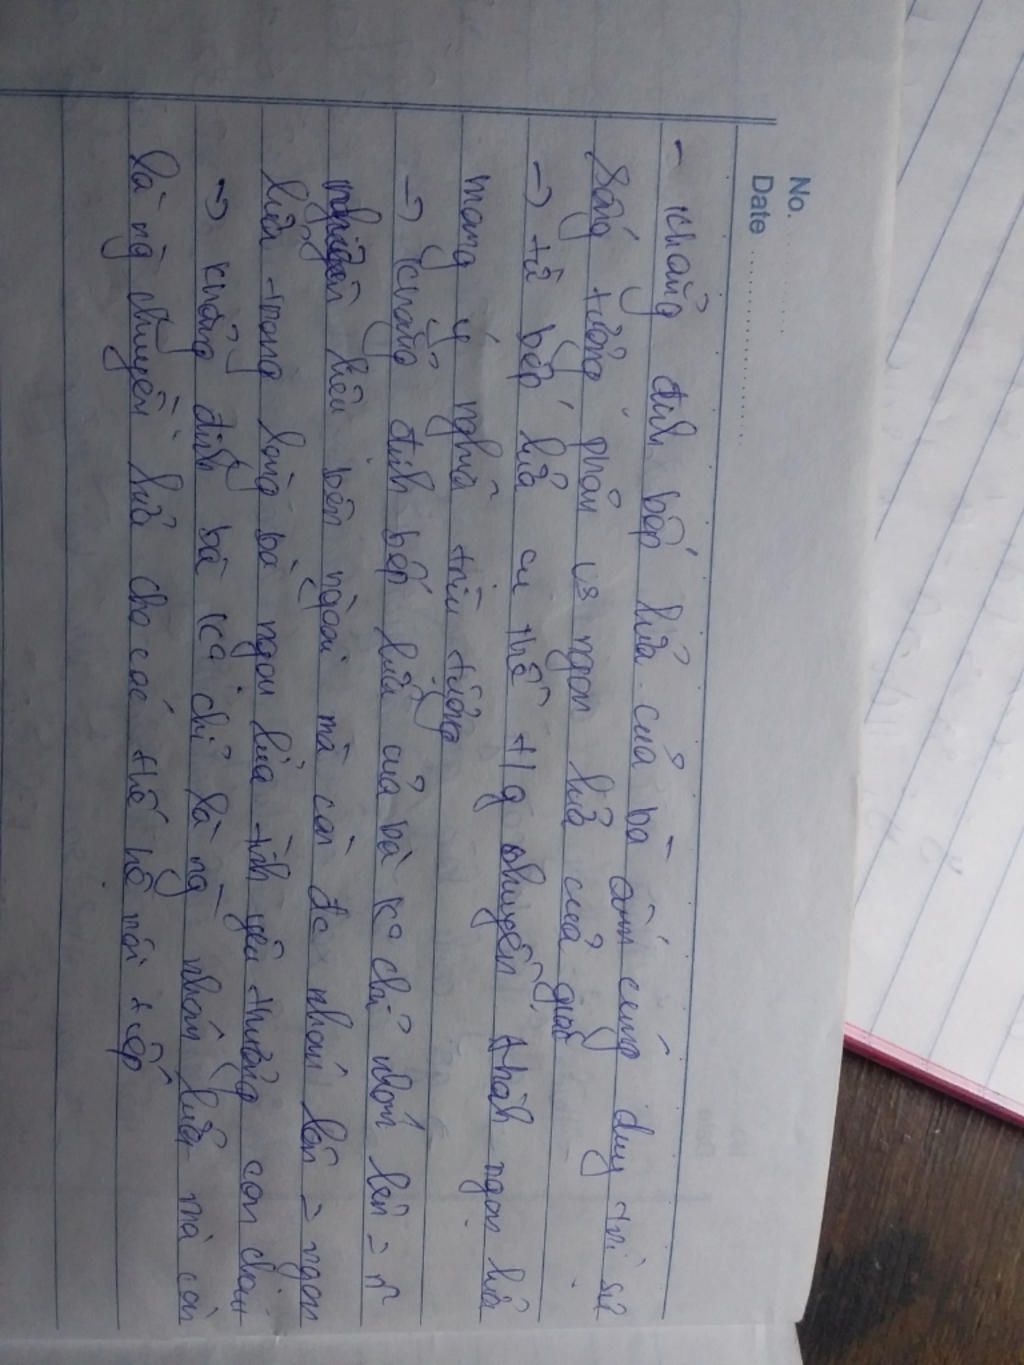 No.
Date
- Khẳng định bếp lửa của bà ấm cúng duy trì sự
sống tương phản vs ngọn lửa của giặc
→ từ bếp lửa cụ thể t/g chuyển thành ngọn lửa
mang ý nghĩa trìu tượng
→ Khẳng định bếp lửa của bà k° chỉ nhóm lên =
nhiên liệu bên ngoài mà còn đc nhóm lên = ngọn
lửa trong lòng bà ngọn lửa tình yêu thương con cháu
→ khẳng định bà k° chỉ là ng nhóm lửa mà còn
là ng chuyền lửa cho các thế hệ nối tiếp